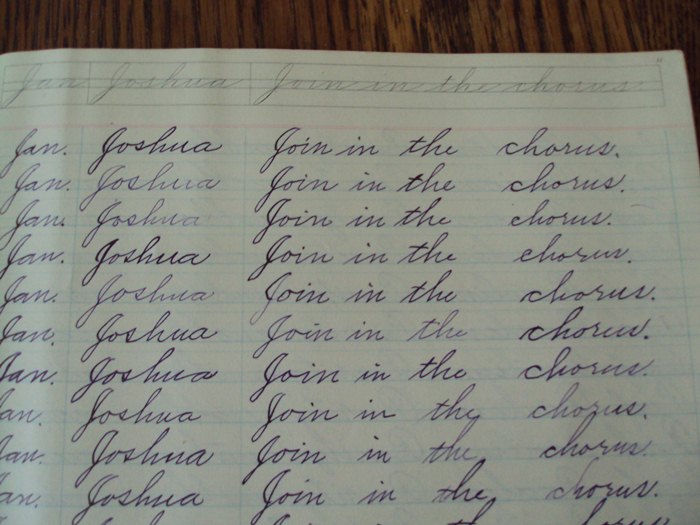 Jan Joshua Join in the chorus
Jan. Joshua Join in the chorus.
Jan. Joshua Join in the chorus.
Jan. Joshua Join in the chorus.
Jan. Joshua Join in the chorus.
Jan. Joshua Join in the chorus.
Jan. Joshua Join in the chorus.
Jan. Joshua Join in the chorus.
Jan. Joshua Join in the chorus.
Jan. Joshua Join in the chorus.
Jan. Joshua Join in the chorus.